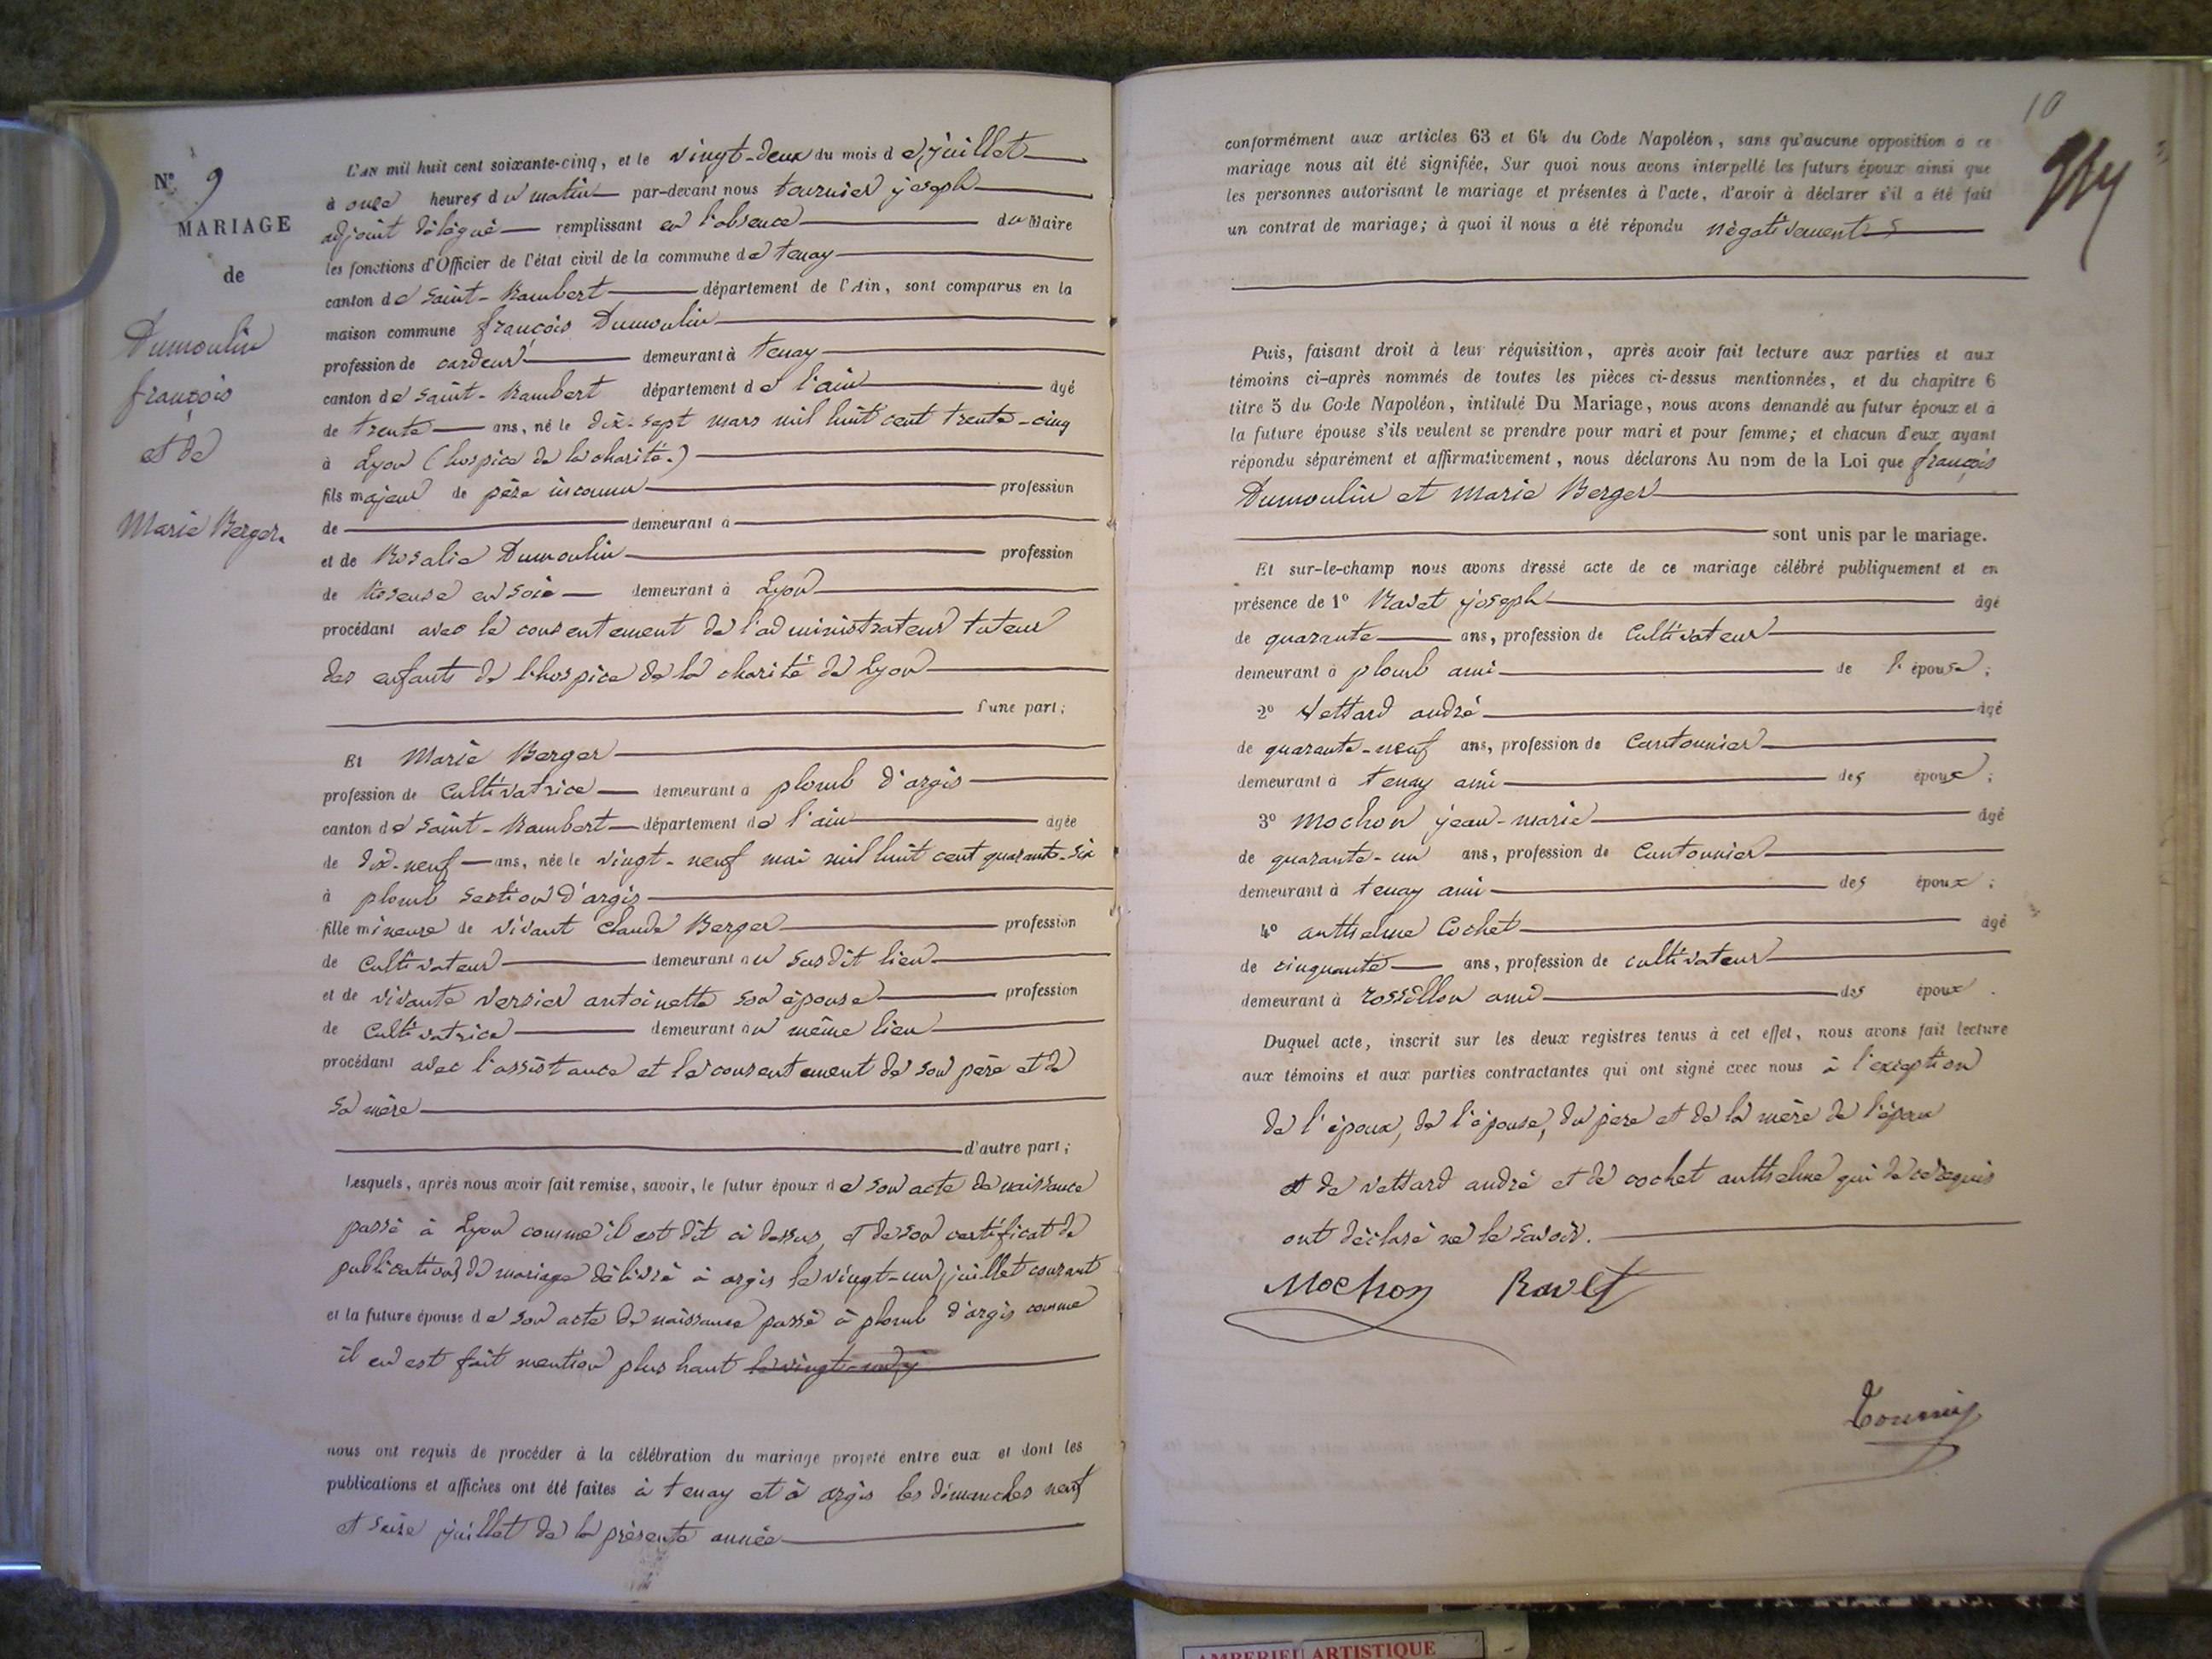 N° 9
MARIAGE
de
Dumoulin
françois
et de
Marie Berger.
L'AN mil huit cent soixante-cinq, et le vingt-deux du mois de juillet
à onze heures du matin par-devant nous tournier joseph
adjoint délégué remplissant en l'absence du Maire
les fonctions d'Officier de l'état civil de la commune de tenay
canton de Saint-Rambert département de l'Ain, sont comparus en la
maison commune françois Dumoulin
profession de cardeur demeurant à tenay
canton de Saint-Rambert département de l'ain âgé
de trente ans, né le dix-sept mars mil huit cent trente-cinq
à Lyon (hospice de la charité.)
fils majeur de père inconnu profession
de demeurant à
et de Rosalie Dumoulin profession
de tisseuse en soie demeurant à Lyon
procédant avec le consentement de l'administrateur tuteur
des enfants de l'hospice de la charité de Lyon
d'une part;
Et Marie Berger
profession de Cultivatrice demeurant à plomb d'argis
canton de Saint-Rambert département de l'ain âgée
de dix-neuf ans, née le vingt-neuf mai mil huit cent quarante-six
à plomb section d'argis
fille mineure de vivant Claude Berger profession
de Cultivateur demeurant au susdit lieu
et de vivante Versier antoinette son épouse profession
de Cultivatrice demeurant au même lieu
procédant avec l'assistance et le consentement de son père et de
sa mère
d'autre part;
Lesquels, après nous avoir fait remise, savoir, le futur époux de son acte de naissance
passé à Lyon comme il est dit ci dessus, et de son certificat de
publications de mariage délivré à argis le vingt-un juillet courant
et la future épouse de son acte de naissance passé à plomb d'argis comme
il en est fait mention plus haut
nous ont requis de procéder à la célébration du mariage projeté entre eux et dont les
publications et affiches ont été faites à tenay et à argis les dimanches neuf
et seize juillet de la présente année
10
conformément aux articles 63 et 64 du Code Napoléon, sans qu'aucune opposition à ce
mariage nous ait été signifiée, Sur quoi nous avons interpellé les futurs époux ainsi que
les personnes autorisant le mariage et présentes à l'acte, d'avoir à déclarer s'il a été fait
un contrat de mariage; à quoi il nous a été répondu négativement
Puis, faisant droit à leur réquisition, après avoir fait lecture aux parties et aux
témoins ci-après nommés de toutes les pièces ci-dessus mentionnées, et du chapitre 6
titre 5 du Code Napoléon, intitulé Du Mariage, nous avons demandé au futur époux et à
la future épouse s'ils veulent se prendre pour mari et pour femme; et chacun d'eux ayant
répondu séparément et affirmativement, nous déclarons Au nom de la Loi que françois
Dumoulin et Marie Berger
sont unis par le mariage.
Et sur-le-champ nous avons dressé acte de ce mariage célébré publiquement et en
présence de 1° Ravet joseph âgé
de quarante ans, profession de Cultivateur
demeurant à plomb ami de l'épouse;
2° Vettard andré âgé
de quarante-neuf ans, profession de Cantonnier
demeurant à tenay ami des époux;
3° Mochon jean-marie âgé
de quarante-un ans, profession de Cantonnier
demeurant à tenay ami des époux;
4° anthelme Cochet âgé
de cinquante ans, profession de cultivateur
demeurant à rossillon ami des époux.
Duquel acte, inscrit sur les deux registres tenus à cet effet, nous avons fait lecture
aux témoins et aux parties contractantes qui ont signé avec nous à l'exception
de l'époux, de l'épouse, du père et de la mère de l'épouse
et de vettard andré et de cochet anthelme qui de ce requis
ont déclaré ne le savoir.
Mochon Ravet
Tournier
AMBERIEU ARTISTIQUE